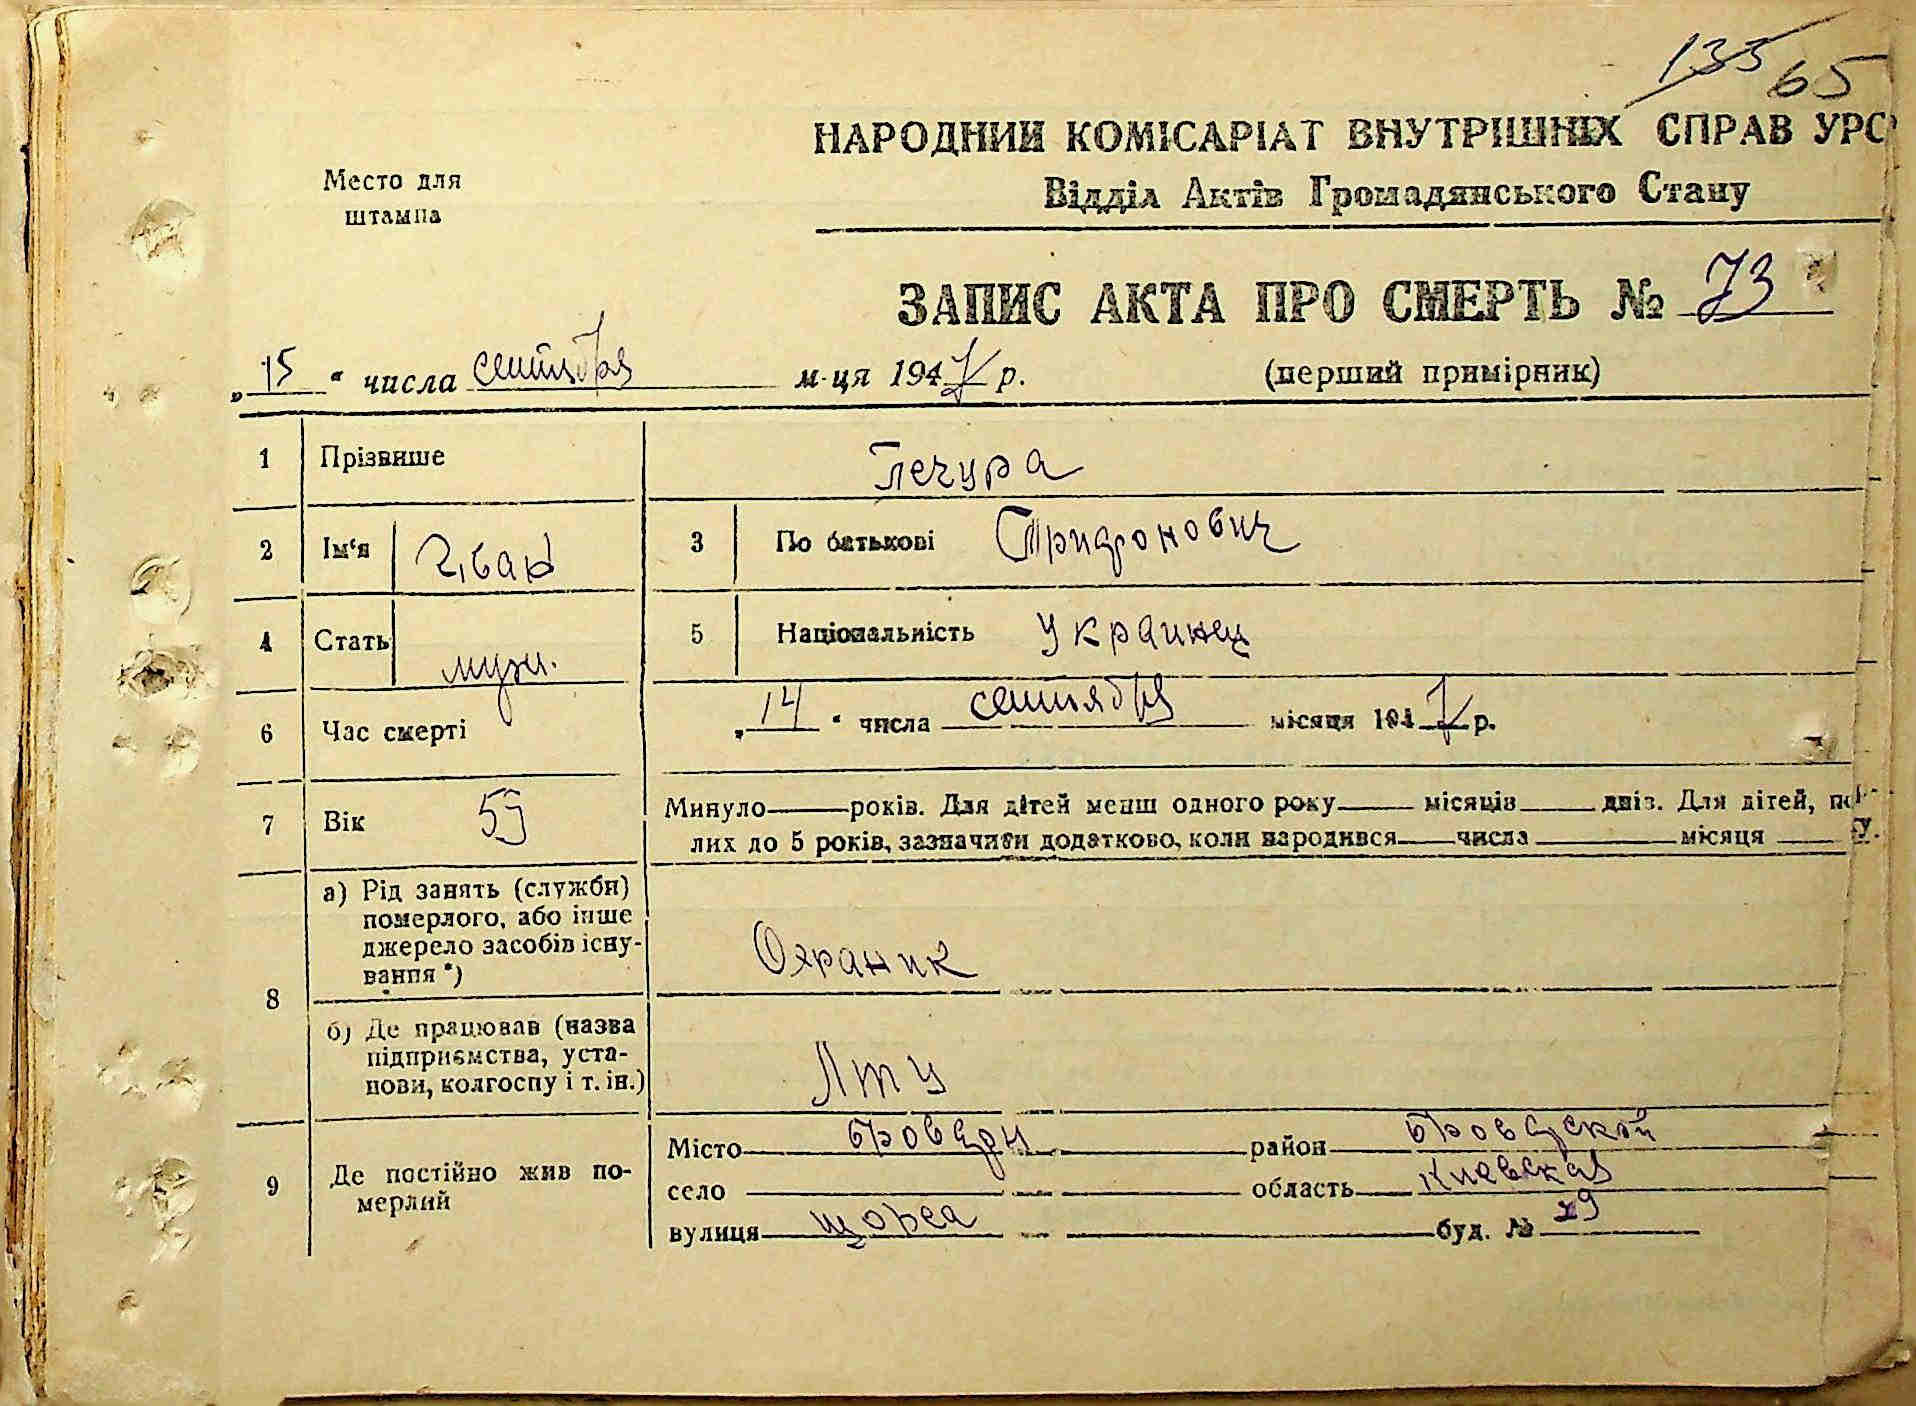 135 65
НАРОДНИЙ КОМІСАРІАТ ВНУТРІШНІХ СПРАВ УРС
Відділ Актів Громадянського Стану
Место для
штампа
ЗАПИС АКТА ПРО СМЕРТЬ № 73
„15“ числа сентября м-ця 1947 р. (перший примірник)
1 Прізвище Печура
2 Ім'я Иван 3 По батькові Трифонович
4 Стать муж. 5 Національність Украинец
6 Час смерті „14“ числа сентября місяця 1947 р.
7 Вік 55 Минуло років. Для дітей менш одного року місяців днів. Для дітей,
лих до 5 років, зазначити додатково, коли народився числа місяця
8 а) Рід занять (служби)
померлого, або інше
джерело засобів існу-
вання *) Охраник
б) Де працював (назва
підприємства, уста-
нови, колгоспу і т. ін.) Лту
9 Де постійно жив по-
мерлий
Місто Бровары район Броварской
село область Киевская
вулиця щорса буд. № 29